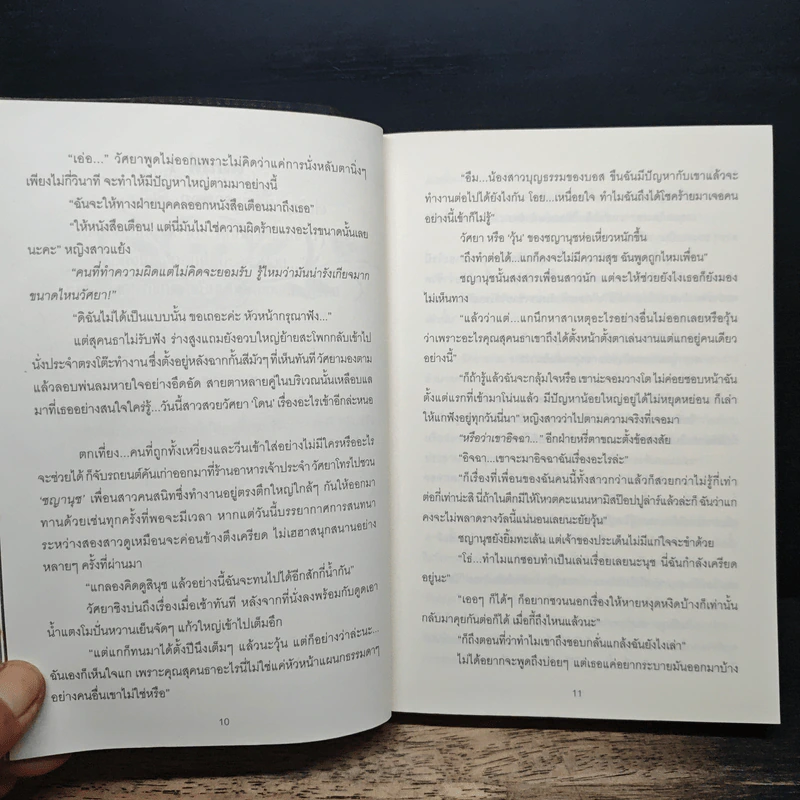 "เอ่อ..." วัศยาพูดไม่ออกเพราะไม่คิดว่าแค่การนั่งหลับตานิ่งๆ
เพียงไม่กี่วินาที จะทำให้มีปัญหาใหญ่ตามมาอย่างนี้
"ฉันจะให้ทางฝ่ายบุคคลออกหนังสือเตือนมาถึงเธอ"
"ให้หนังสือเตือน! แต่นี่มันไม่ใช่ความผิดร้ายแรงอะไรขนาดนั้นเลย
นะคะ" หญิงสาวแย้ง
"คนที่ทำความผิดแต่ไม่คิดจะยอมรับ รู้ไหมว่ามันน่ารังเกียจมาก
ขนาดไหนวัศยา!"
"ดิฉันไม่ได้เป็นแบบนั้น ขอเถอะค่ะ หัวหน้ากรุณาฟัง..."
แต่สุคนธาไม่รับฟัง ร่างสูงแถมยังอวบใหญ่ย้ายสะโพกกลับเข้าไป
นั่งประจำตรงโต๊ะทำงานซึ่งตั้งอยู่หลังฉากกั้นสีมัวๆ ที่เห็นทันที วัศยามองตาม
แล้วลอบพ่นลมหายใจอย่างอึดอัด สายตาหลายคู่ในบริเวณนั้นเหลือบแล
มาที่เธออย่างสนใจใคร่รู้...วันนี้สาวสวยวัศยา 'โดน' เรื่องอะไรเข้าอีกล่ะหนอ
ตกเที่ยง...คนที่ถูกทั้งเหวี่ยงและวีนเข้าใส่อย่างไม่มีใครหรืออะไร
จะช่วยได้ ก็จับรถยนต์คันเก่าออกมาที่ร้านอาหารเจ้าประจำ วัศยาโทรไปชวน
'ชญานุช' เพื่อนสาวคนสนิทซึ่งทำงานอยู่ตรงตึกใหญ่ใกล้ๆ กันให้ออกมา
ทานด้วยเช่นทุกครั้งที่พอจะมีเวลา หากแต่วันนี้บรรยากาศการสนทนา
ระหว่างสองสาวดูเหมือนจะค่อนข้างตึงเครียด ไม่เฮฮาสนุกสนานอย่าง
หลายๆ ครั้งที่ผ่านมา
"แกลองคิดดูสินุช แล้วอย่างนี้ฉันจะทนไปได้อีกสักกี่น้ำกัน"
วัศยาชิงบ่นถึงเรื่องเมื่อเช้าทันที หลังจากที่นั่งลงพร้อมกับดูดเอา
น้ำแตงโมปั่นหวานเย็นจัดๆ แก้วใหญ่เข้าไปเต็มอึก
"แต่แกก็ทนมาได้ตั้งปีนึงเต็มๆ แล้วนะวุ้น แต่ก็อย่างว่าล่ะนะ...
ฉันเองก็เห็นใจแก เพราะคุณสุคนธาอะไรนี่ไม่ใช่แค่หัวหน้าแผนกธรรมดาๆ
อย่างคนอื่นเขาไม่ใช่หรือ"
10
"อืม...น้องสาวบุญธรรมของบอส ขืนฉันมีปัญหากับเขาแล้วจะ
ทำงานต่อไปได้ยังไงกัน โอย...เหนื่อยใจ ทำไมฉันถึงได้โชคร้ายมาเจอคน
อย่างนี้เข้าก็ไม่รู้"
วัศยา หรือ 'วุ้น' ของชญานุชห่อเหี่ยวหนักขึ้น
"ถึงทำต่อได้...แกก็คงจะไม่มีความสุข ฉันพูดถูกไหมเพื่อน"
ชญานุชนั้นสงสารเพื่อนสาวนัก แต่จะให้ช่วยยังไงเธอก็ยังมอง
ไม่เห็นทาง
"แล้วว่าแต่...แกนึกหาสาเหตุอะไรอย่างอื่นไม่ออกเลยหรือวุ้น
ว่าเพราะอะไรคุณสุคนธาเขาถึงได้ตั้งหน้าตั้งตาเล่นงานแต่แกอยู่คนเดียว
อย่างนี้"
"ก็ถ้ารู้แล้วฉันจะกลุ้มใจหรือ เขาน่ะจอมวางโต ไม่ค่อยชอบหน้าฉัน
ตั้งแต่แรกที่เข้ามาโน่นแล้ว มีปัญหาน้อยใหญ่อยู่ได้ไม่หยุดหย่อน ก็เล่า
ให้แกฟังอยู่ทุกวันนี่นา" หญิงสาวว่าไปตามความจริงที่เจอมา
"หรือว่าเขาอิจฉา..." อีกฝ่ายหรี่ตาขณะตั้งข้อสงสัย
"อิจฉา...เขาจะมาอิจฉาฉันเรื่องอะไรล่ะ"
"ก็เรื่องที่เพื่อนของฉันคนนี้ทั้งสาวกว่าแล้วก็สวยกว่าไม่รู้กี่เท่า
ต่อกี่เท่าน่ะสิ นี่ถ้าในตึกมีให้โหวตคะแนนหามิสป๊อปปูล่าร์แล้วล่ะก็ ฉันว่าแก
คงจะไม่พลาดรางวัลนี้แน่นอนเลยนะยัยวุ้น"
ชญานุชยังยิ้มทะเล้น แต่เจ้าของประเด็นไม่มีแก่ใจจะขำด้วย
"โธ่...ทำไมแกชอบทำเป็นเล่นเรื่อยเลยนะนุช นี่ฉันกำลังเครียด
อยู่นะ"
"เออๆ ก็ได้ๆ ก็อยากชวนนอกเรื่องให้หายหงุดหงิดบ้างก็เท่านั้น
กลับมาคุยกันต่อก็ได้ เมื่อกี้ถึงไหนแล้วนะ"
"ก็ถึงตอนที่ว่าทำไมเขาถึงชอบกลั่นแกล้งฉันยังไงเล่า"
ไม่ได้อยากจะพูดถึงบ่อยๆ แต่เธอแค่อยากระบายมันออกมาบ้าง
11